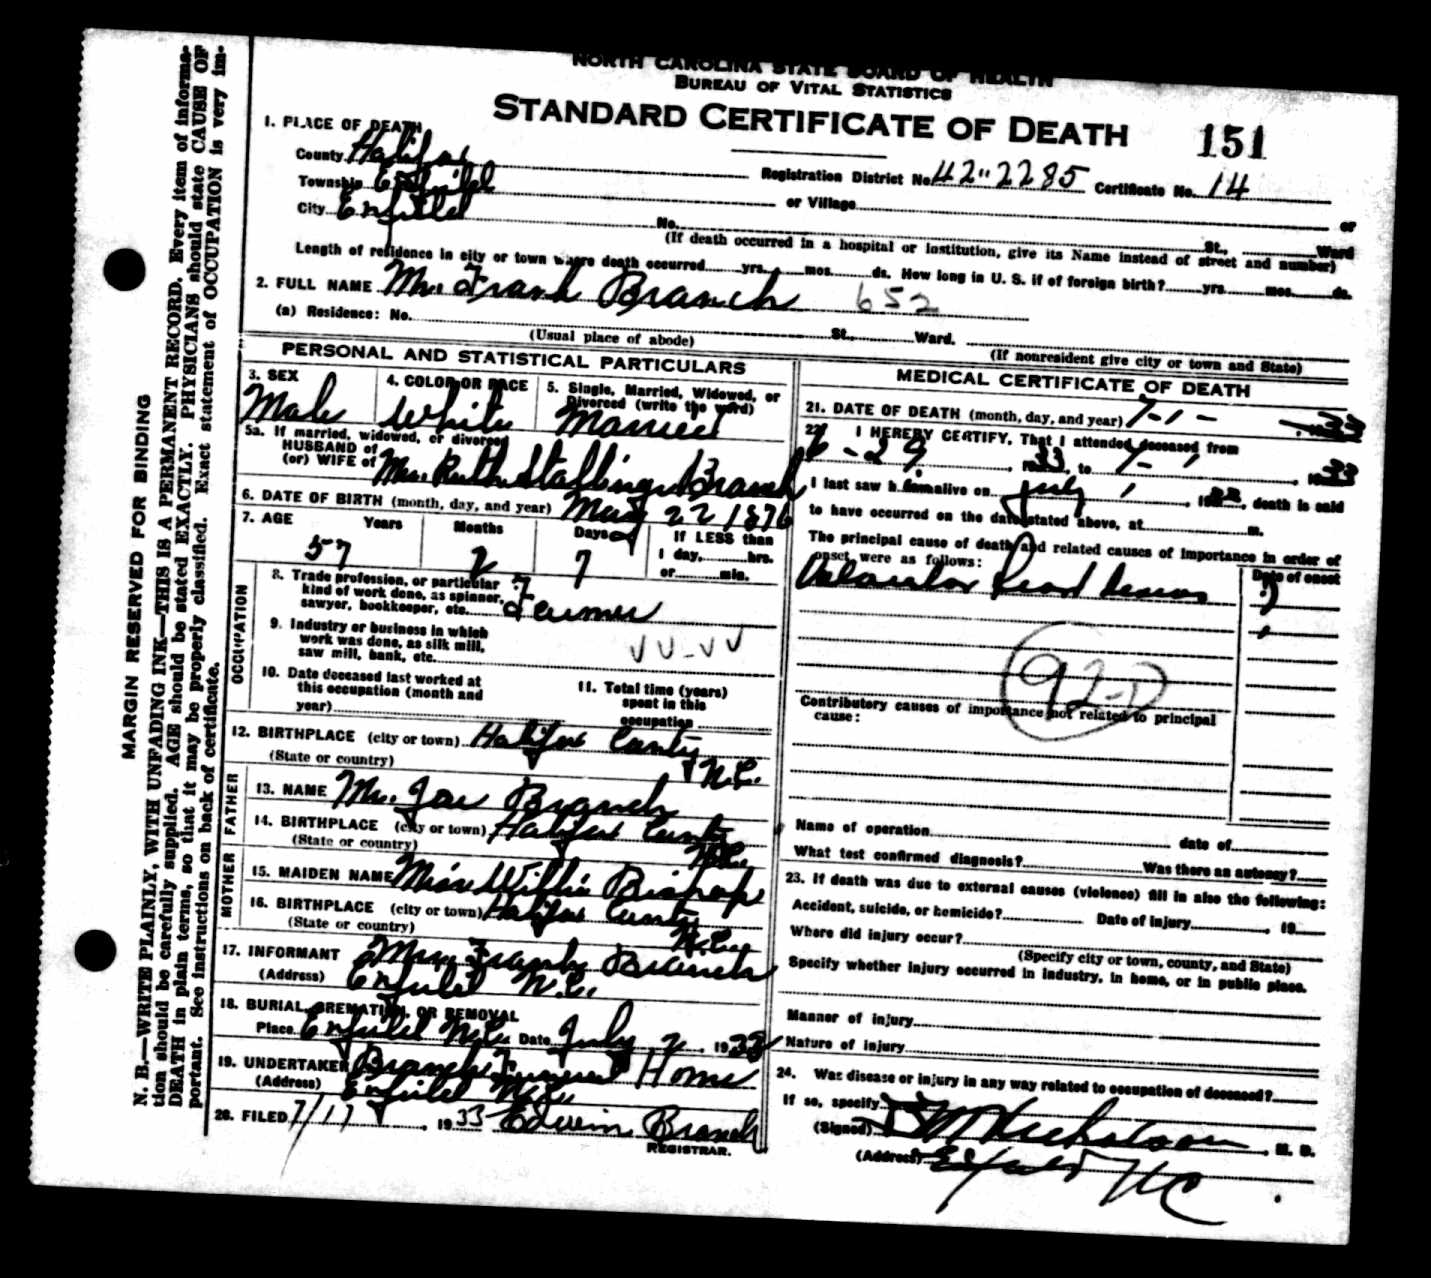 NORTH CAROLINA STATE BOARD OF HEALTH
BUREAU OF VITAL STATISTICS
STANDARD CERTIFICATE OF DEATH 151
1. PLACE OF DEATH
County Halifax Registration District No. 42-2285 Certificate No. 14
Township Enfield or Village or
City Enfield No. St., Ward
(If death occurred in a hospital or institution, give its Name instead of street and number)
Length of residence in city or town where death occurred yrs. mos. ds. How long in U. S. if of foreign birth? yrs. mos. ds.
2. FULL NAME Mr. Frank Branch 652
(a) Residence: No. St., Ward.
(Usual place of abode) (If nonresident give city or town and State)
PERSONAL AND STATISTICAL PARTICULARS
3. SEX Male
4. COLOR OR RACE White
5. Single, Married, Widowed, or Divorced (write the word) Married
5a. If married, widowed, or divorced
HUSBAND of
(or) WIFE of Mrs. Ruth Stallings Branch
6. DATE OF BIRTH (month, day, and year) May 22 1876
7. AGE Years Months Days If LESS than
57 2 7 1 day, hrs.
or min.
OCCUPATION
8. Trade profession, or particular
kind of work done, as spinner,
sawyer, bookkeeper, etc. Farmer
9. Industry or business in which
work was done, as silk mill,
saw mill, bank, etc.
10. Date deceased last worked at
this occupation (month and
year)
11. Total time (years)
spent in this
occupation
12. BIRTHPLACE (city or town) Halifax County
(State or country) N.C.
FATHER
13. NAME Mr. Joe Branch
14. BIRTHPLACE (city or town) Halifax County
(State or country) N.C.
MOTHER
15. MAIDEN NAME Miss Willie Bishop
16. BIRTHPLACE (city or town) Halifax County
(State or country) N.C.
17. INFORMANT Mrs. Frank Branch
(Address) Enfield N.C.
18. BURIAL, CREMATION, OR REMOVAL
Place Enfield N.C. Date July 2, 1933
19. UNDERTAKER Branch Funeral Home
(Address) Enfield N.C.
20. FILED 7/17, 1933 Edwin Branch
REGISTRAR.
MEDICAL CERTIFICATE OF DEATH
21. DATE OF DEATH (month, day, and year) 7-1- 33
22. I HEREBY CERTIFY, That I attended deceased from
6-29, 1933, to 7-1, 1933
I last saw h im alive on July 1, 1933, death is said
to have occurred on the date stated above, at m.
The principal cause of death and related causes of importance in order of
onset were as follows: Date of onset
Heart Disease
92-D
Contributory causes of importance not related to principal
cause:
Name of operation date of
What test confirmed diagnosis? Was there an autopsy?
23. If death was due to external causes (violence) fill in also the following:
Accident, suicide, or homicide? Date of injury , 19
Where did injury occur?
(Specify city or town, county, and State)
Specify whether injury occurred in industry, in home, or in public place.
Manner of injury
Nature of injury
24. Was disease or injury in any way related to occupation of deceased?
If so, specify
(Signed) Nicholson, M. D.
(Address) Enfield NC
MARGIN RESERVED FOR BINDING
N. B.—WRITE PLAINLY, WITH UNFADING INK—THIS IS A PERMANENT RECORD. Every item of informa-
tion should be carefully supplied. AGE should be stated EXACTLY. PHYSICIANS should state CAUSE OF
DEATH in plain terms, so that it may be properly classified. Exact statement of OCCUPATION is very im-
portant. See instructions on back of certificate.